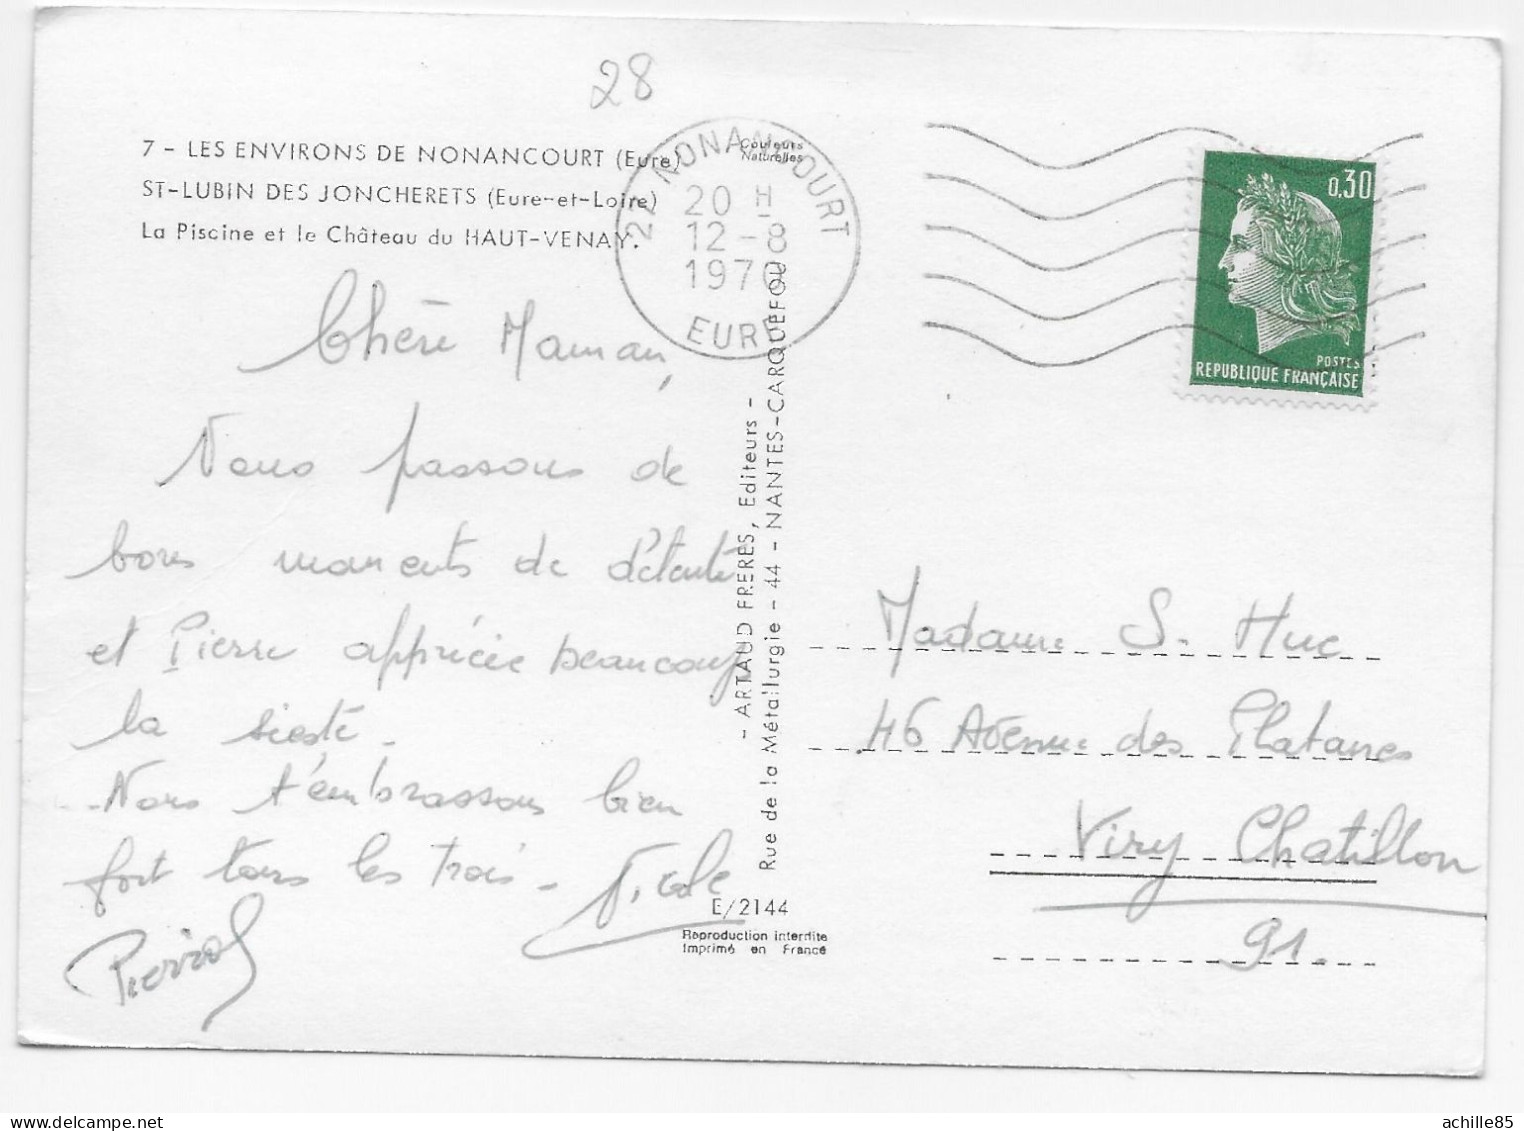 28
7 - LES ENVIRONS DE NONANCOURT (Eure)
ST-LUBIN DES JONCHERETS (Eure-et-Loire)
La Piscine et le Château du HAUT-VENAY.
Couleurs
Naturelles
27 NONANCOURT
20 H
12-8
1970
EURE
0,30
POSTES
REPUBLIQUE FRANÇAISE
Chère Maman,
Nous passons de
bons moments de détente
et Pierre apprécie beaucoup
la sieste.
Nous t'embrassons bien
fort tous les trois.
Nicole
Pierrot
- ARTAUD FRERES, Editeurs -
Rue de la Métallurgie - 44 - NANTES-CARQUEFOU
E/2144
Reproduction interdite
Imprimé en France
Madame S. Huc
46 Avenue des Platanes
Viry Chatillon
91.
achille85